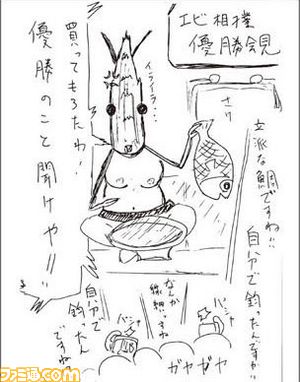 エビ相撲
優勝会見
さり
立派な鯛ですね!!
自分で釣ったんですか
イライラ・・・
買ってもろたわ!
優勝のこと聞けや!!
なんか
繊細っすね
自分で
釣ったん
ですね
バシャ
バシャ
ガヤガヤ
ファミ通.com